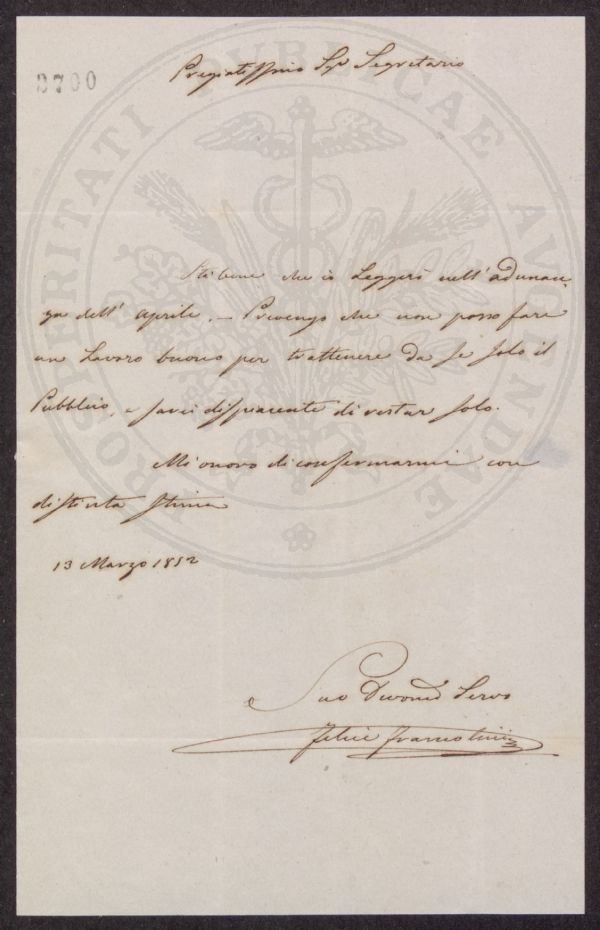 3700
PROSPERITATI PVBLICAE AVGENDAE
Pregiatissimo Sigr Segretario
Sta bene che io Leggerò nell' adunan=
za dell' aprile. — Prevengo che non posso fare
un Lavoro buono per trattenere da se solo il
Pubblico, e sarei dispiacente di restar solo.
Mi onoro di confermarmi con
distinta stima
13 Marzo 1852
Suo Devomo Servo
Felice